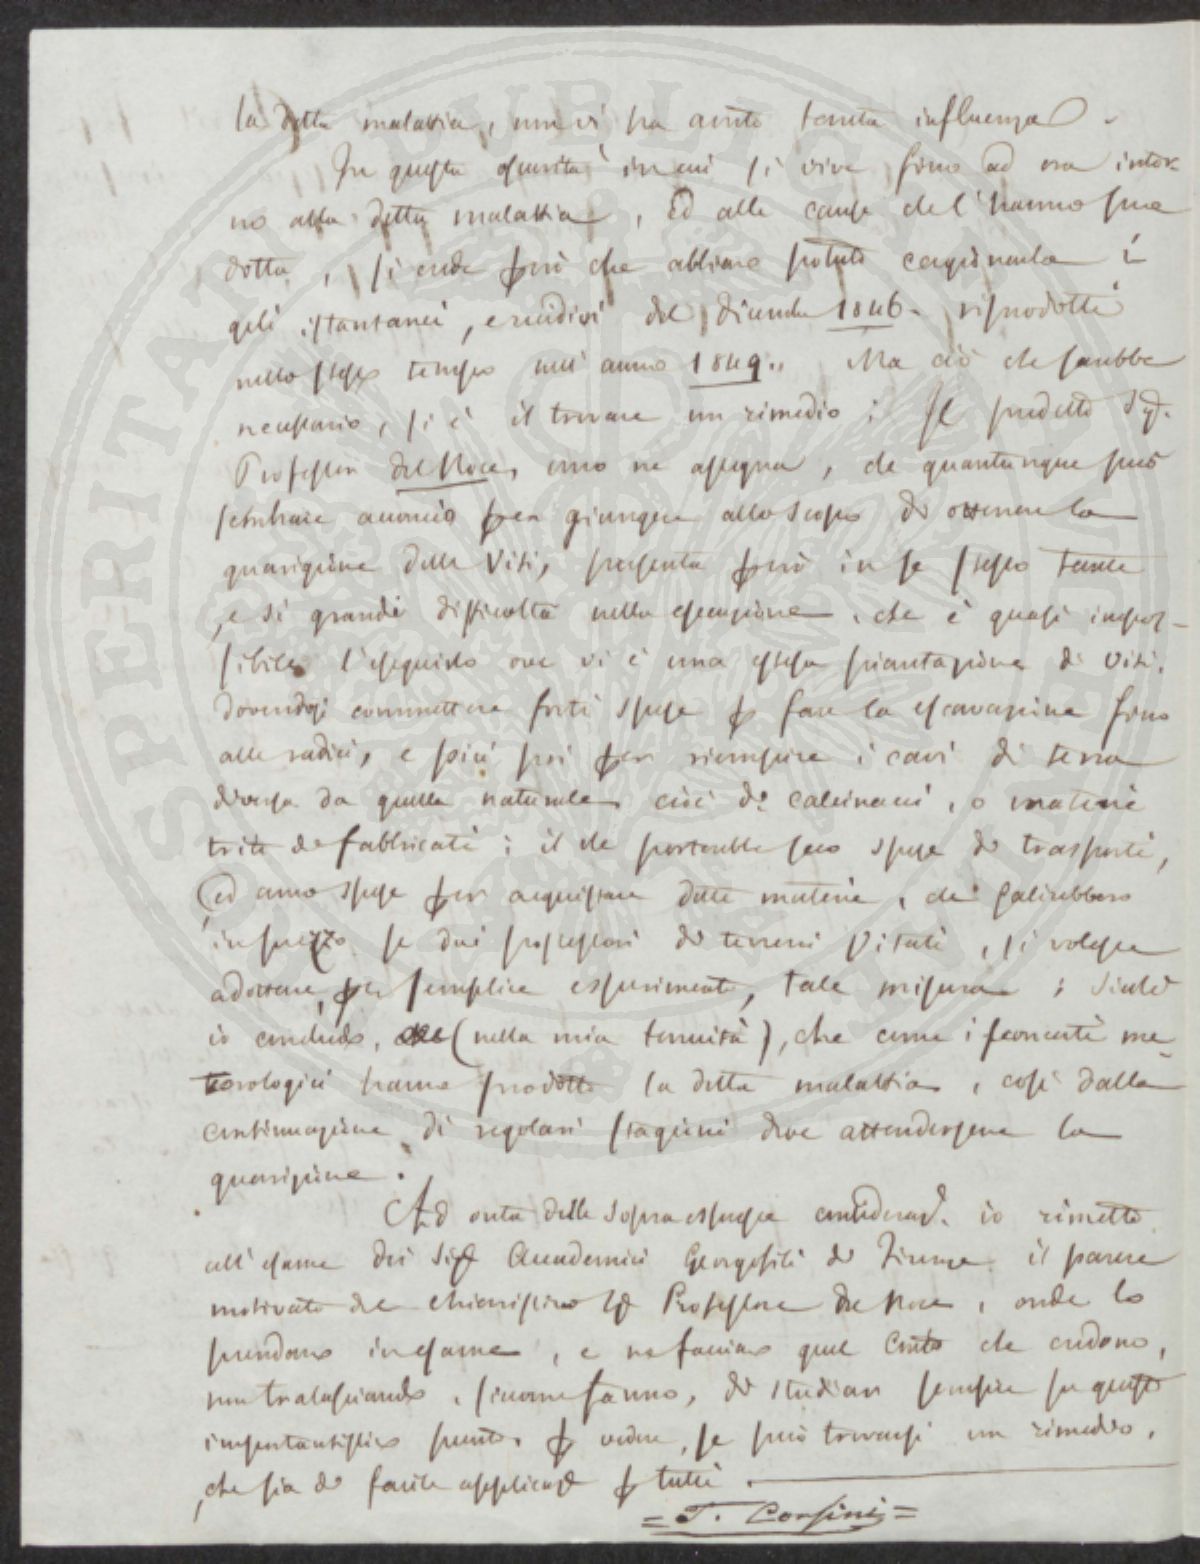 la detta malattia, non vi ha avuto tenuta influenza.
In questa oscurità in cui si vive fino ad ora intor-
no alla detta malattia, ed alle cause che l'hanno pro
dotta, si crede però che abbiano potuto cagionarla i
geli istantanei, e recidivi del Dicembre 1846. riprodotti
nello stesso tempo nell'anno 1849.. Ma ciò che sarebbe
necessario, si è il trovare un rimedio: Il predetto Sig.
Professor del Noce, uno ne assegna, che quantunque può
sembrare acconcio per giungere allo scopo di ottenere la
guarigione delle Viti, presenta però in se stesso tante
, e sì grandi difficoltà nella esecuzione, che è quasi impos-
sibile l'eseguirlo ove vi è una estesa piantazione di viti,
dovendosi commettere forti spese p fare la escavazione fino
alle radici, e più poi per riempire i cavi di terra
diversa da quella naturale, cioè di calcinacci, o materie
trite di fabbricati; il che porterebbe seco spese di trasporti,
ed anco spese per acquistare dette materie, che salirebbero
in prezzo se dai possessori di terreni vitati, si volesse
adottare, per semplice esperimento, tale misura;
io concludo, (nella mia tenuità), che come i sconcerti me-
teorologici hanno prodotto la detta malattia, così dalla
continuazione di regolari stagioni deve attendersene la
guarigione.
Ad onta delle sopra espresse considerad. io rimetto
all'esame dei Sig Accademici Georgofili di Firenze il parere
motivato del chiarissimo Sig Professore del Noce, onde lo
prendano in esame, e ne facciano quel conto che credono,
non tralasciando, siccome fanno, di studiar sempre su questo
importantissimo punto, p vedere, se può trovarsi un rimedio,
che sia di facile applicazd p tutti.
= T. Corsini =